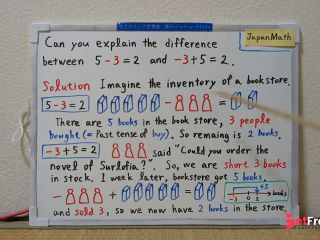 JapanMath
Can you explain the difference
between 5-3=2 and -3+5=2.
Solution Imagine the inventory of a bookstore.
5-3=2
There are 5 books in the book store, 3 people
bought (= Past tense of buy). So remaing is 2 books.
-3+5=2 said "Could you order the
novel of Surlofia?" So, we are short 3 books
in stock. 1 week later, bookstore got 5 books
and sold 3, so we now have 2 books in the store.
+5
-3 0 2 books